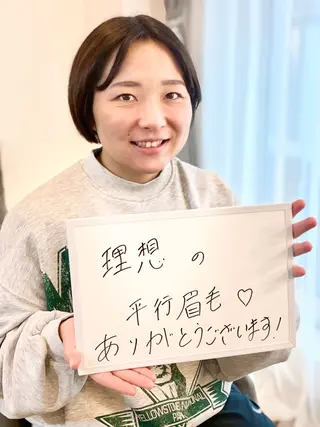 理想の
平行眉毛♡
ありがとうございます!
YELLOWSTONE NATIONAL
PARK